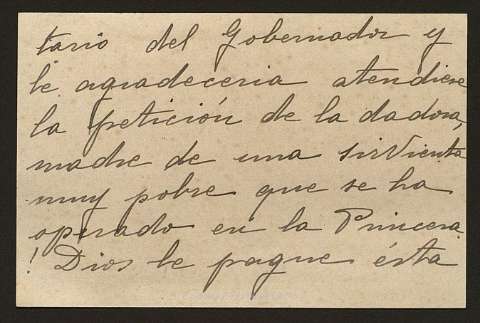 tario del Gobernador y
le agradeceria atendiese
la petición de la dadora,
madre de una sirvienta
muy pobre que se ha
operado en la Princesa
! Dios le pague ésta